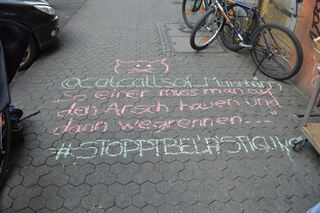 @catcallsof_Mannheim
"So einer muss man auf
den Arsch hauen und
dann wegrennen..."
#STOPPTBELÄSTIGUNG